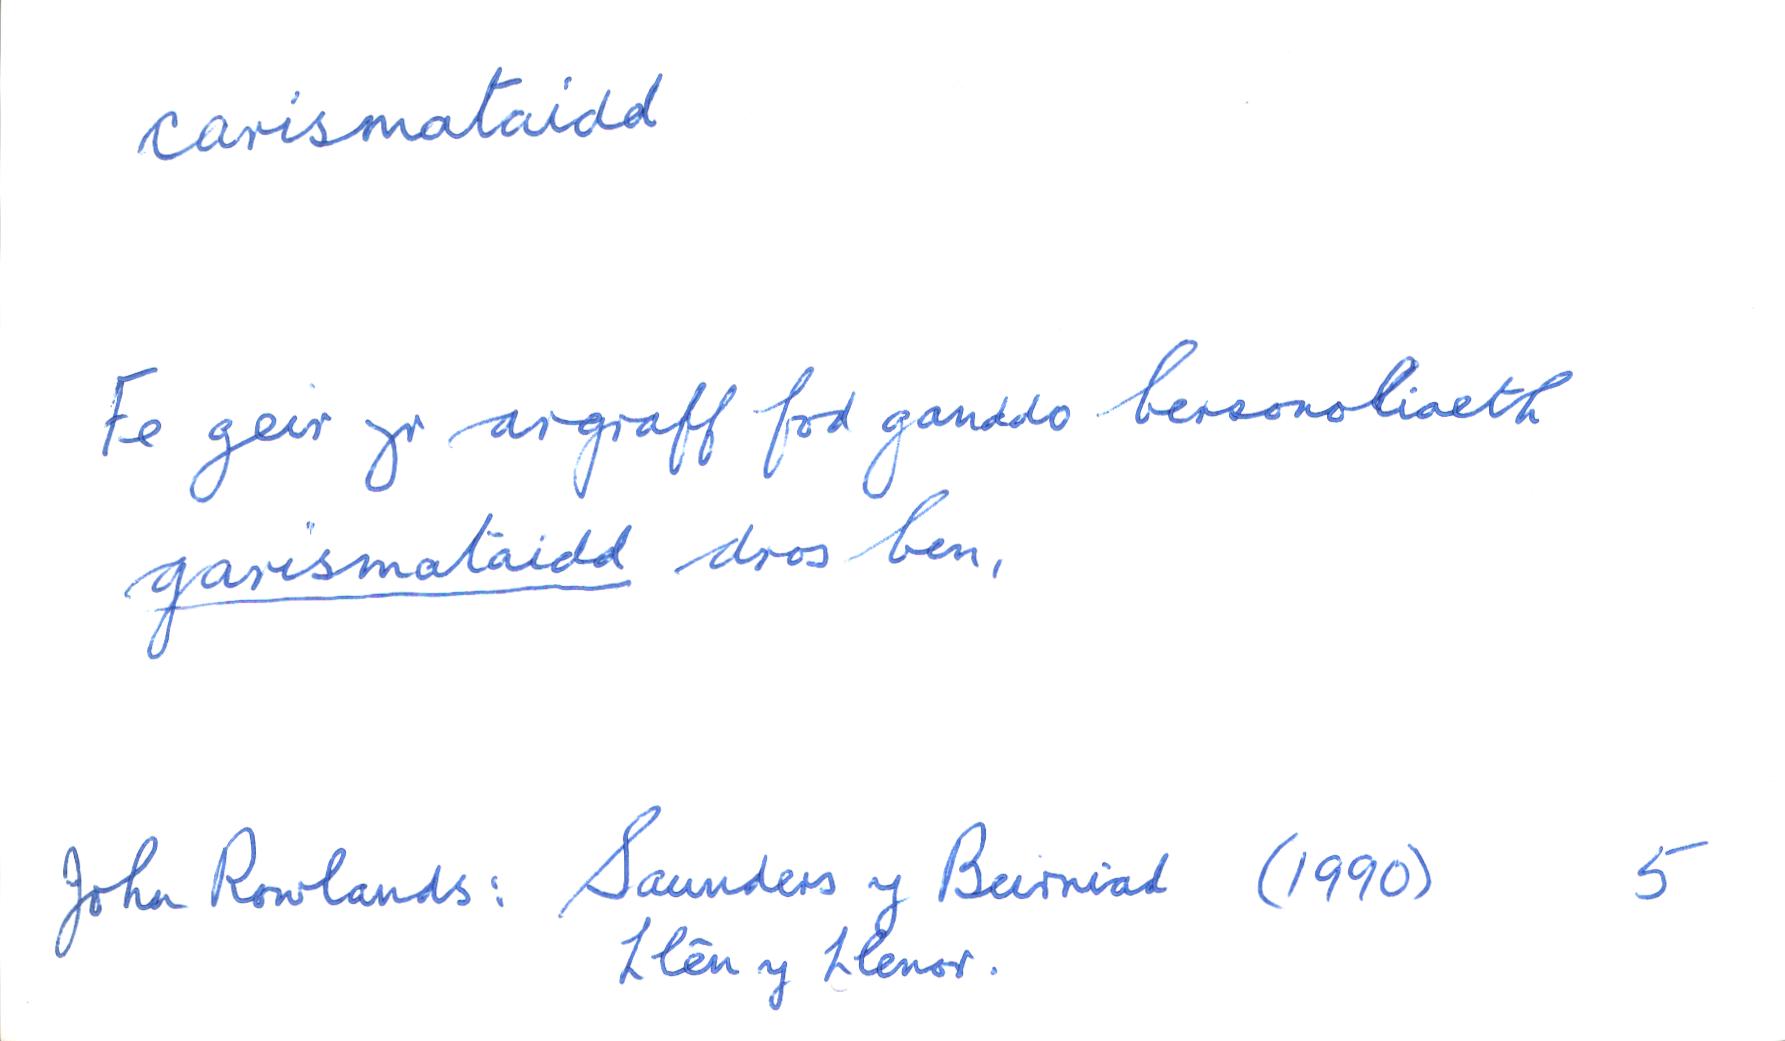 carismataidd
Fe geir yr argraff fod ganddo bersonoliaeth
garismataidd dros ben,
John Rowlands: Saunders y Beirniad (1990) 5
Llên y Llenor.